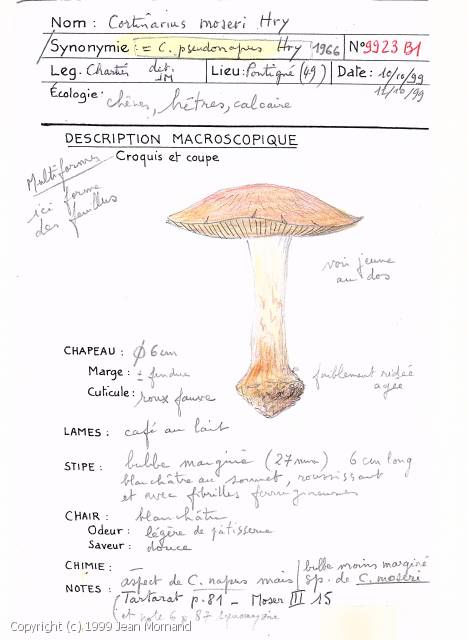 Nom : Cortinarius moseri Hry
Synonymie : = C. pseudonapus Hry 1966 N° 9923 B1
Leg. Chartier det. JM Lieu : Pontigné (49) Date : 10/10/99
11/10/99
Écologie : chênes, hêtres, calcaire
DESCRIPTION MACROSCOPIQUE
Croquis et coupe
Multiformes
ici forme
des feuillus
voir jeune
au dos
CHAPEAU : Ø 6 cm
Marge : ± fendue
Cuticule : roux fauve
faiblement ridée
agée
LAMES : café au lait
STIPE : bulbe marginé (27mm) 6 cm long
blanchâtre au sommet, roussissant
et avec fibrilles ferrugineuses
CHAIR : blanchâtre
Odeur : légère de pâtisserie
Saveur : douce
CHIMIE : —
NOTES : aspect de C. napus mais bulbe moins marginé
sp. de C. moseri
(Tartarat p. 81 - Moser III 15
(et note 6 p 87 synonymie
Copyright (c) 1999 Jean Mornand